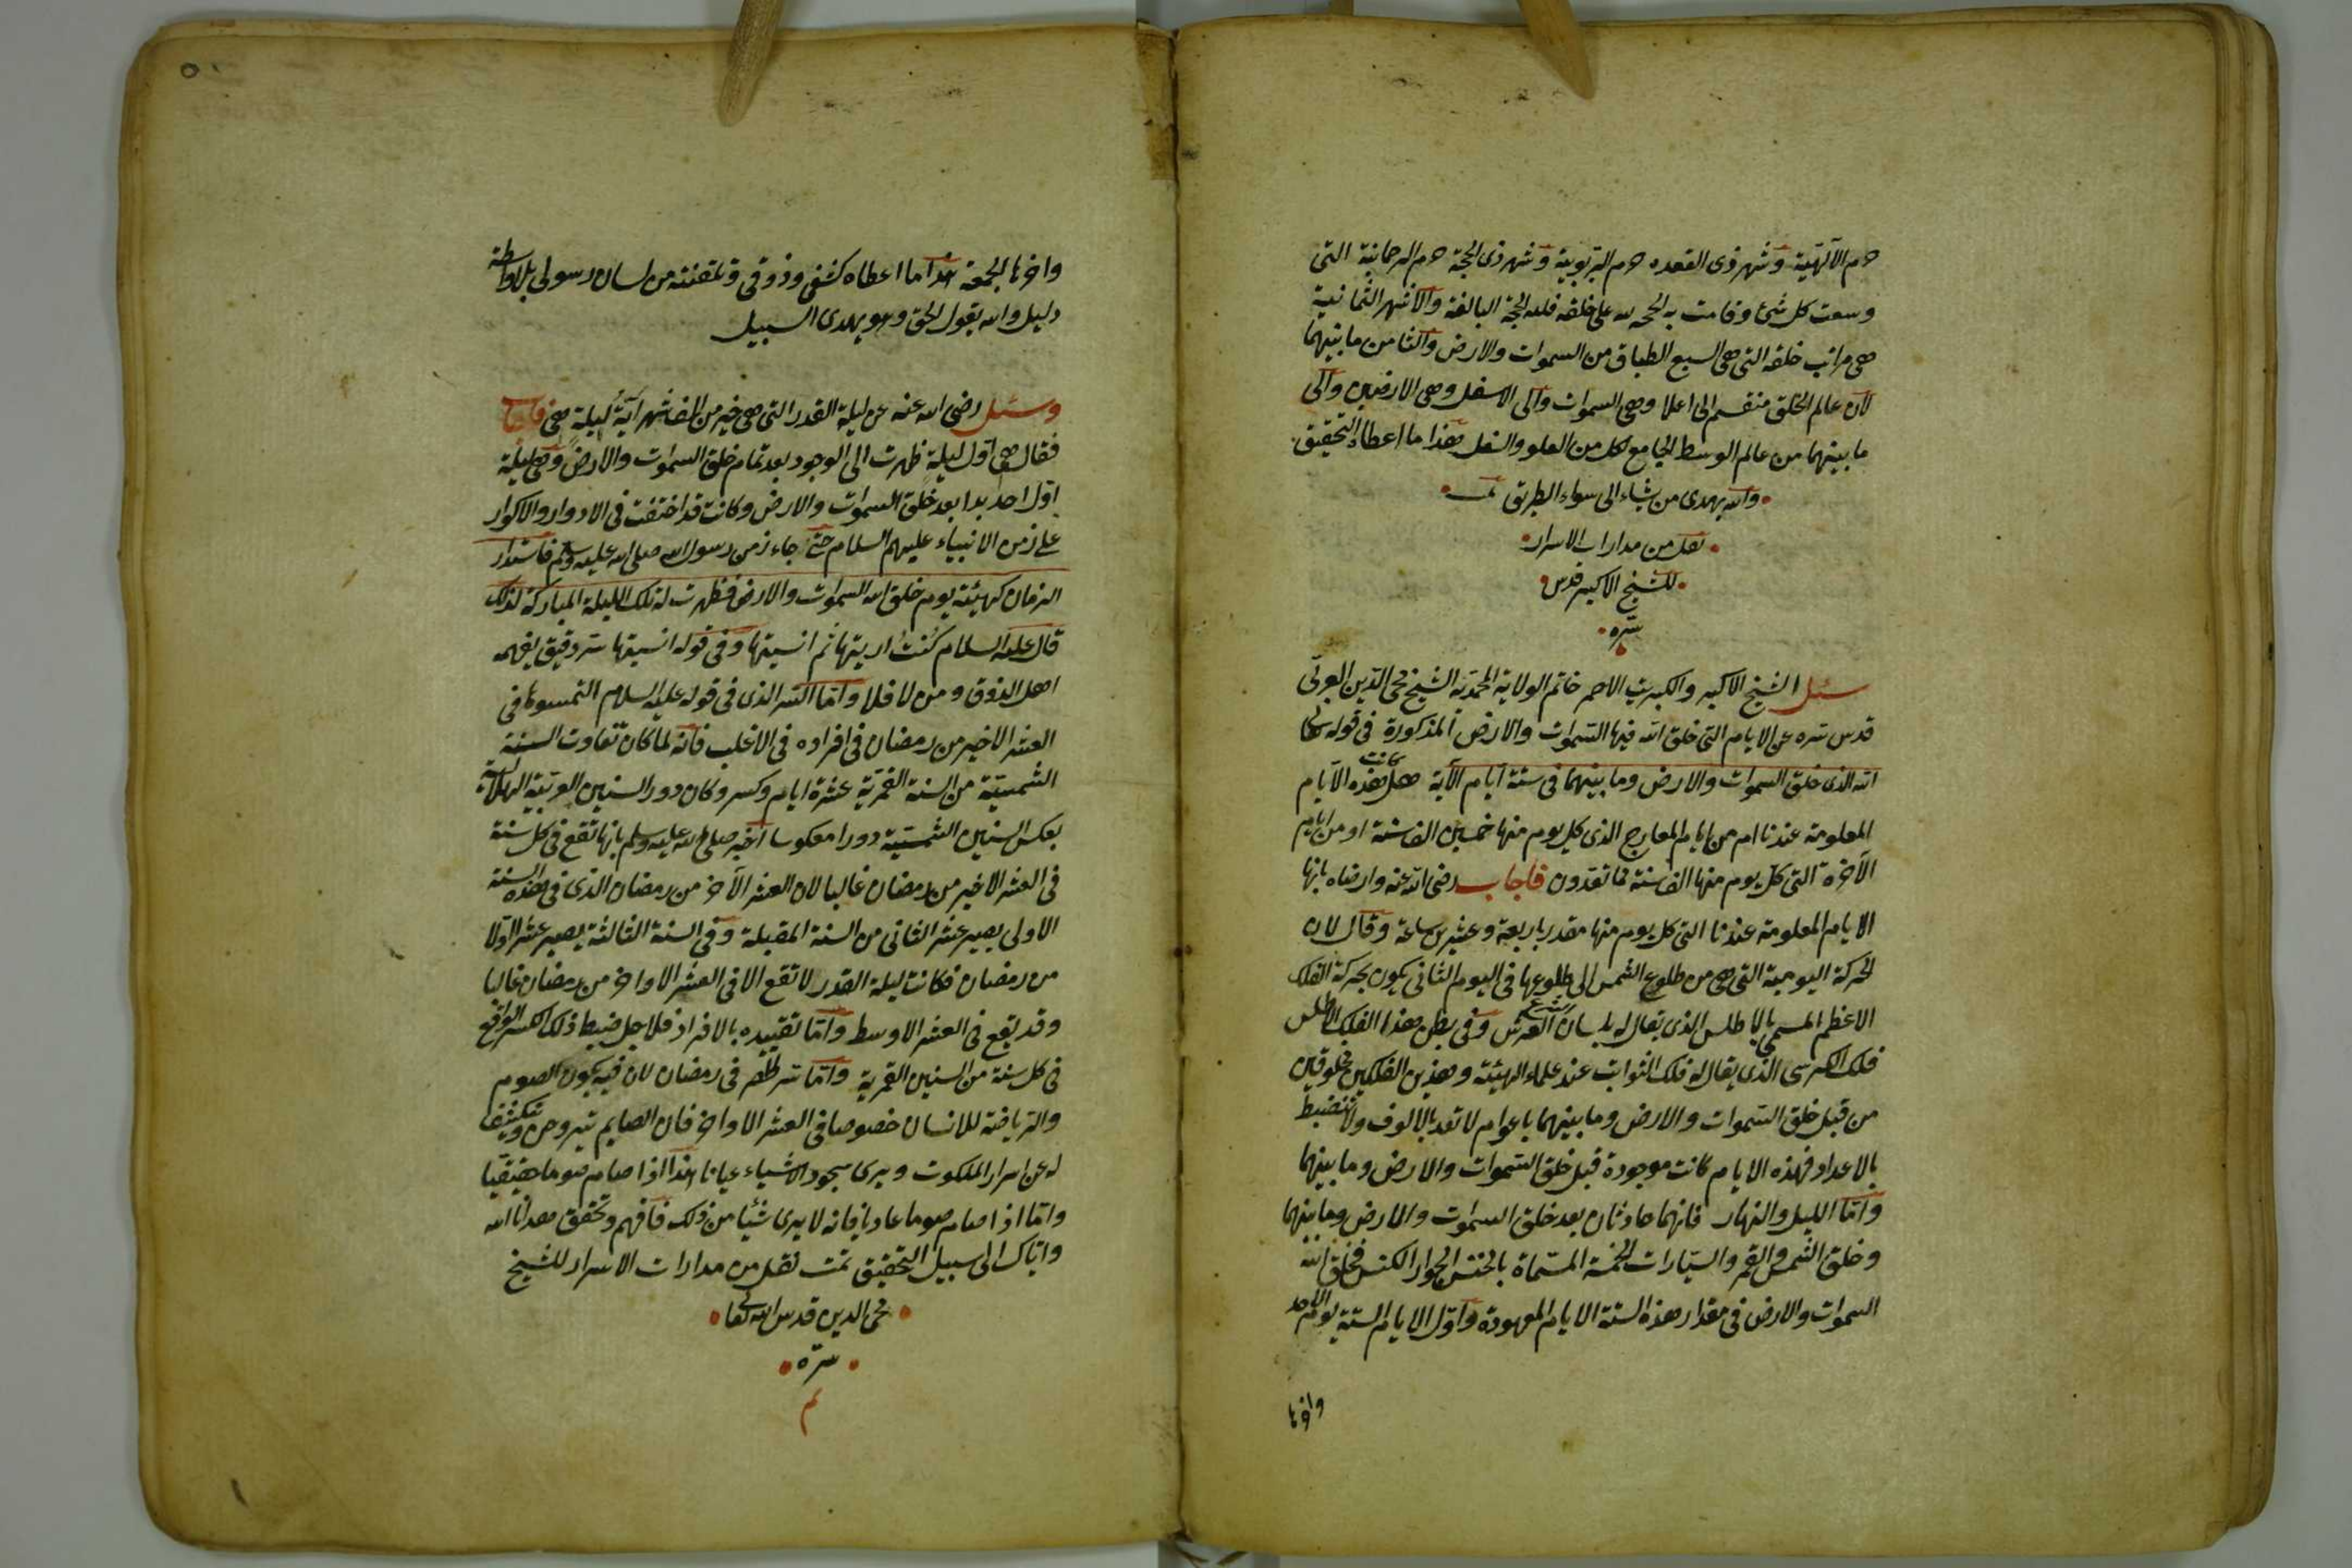 حرم الآلهية وشهر ذى القعده حرم الربوبية وشهر ذى الحجة حرم الرحمانية التى
وسعت كل شئ وقامت به الحجه لله على خلقه فلله الحجة البالغة والاشهر الثمانية
هى مراتب خلقه التى هى السبع الطباق من السموات والارض والثامن ما بينهما
لان عالم الخلق منقسم الى اعلا وهى السموات والى الاسفل وهى الارضين والى
ما بينهما من عالم الوسط الجامع لكل من العلو والسفل هذا ما اعطاه التحقيق
والله يهدى من يشاء الى سواء الطريق تمت
نقل من مدارات الاسرار
للشيخ الاكبر قدس
سره
سئل الشيخ الاكبر والكبريت الاحمر خاتم الولاية المحمدية الشيخ محى الدين العربى
قدس سره عن الايام التى خلق الله فيها السموات والارض المذكورة فى قوله تعالى
الله الذى خلق السموات والارض وما بينهما فى ستة ايام الآية هل كانت هذه الايام
المعلومة عندنا ام من ايام المعارج الذى كل يوم منها خمسين الف سنة او من ايام
الآخرة التى كل يوم منها الف سنة مما تعدون فاجاب رضى الله عنه وارضاه بانها
الايام المعلومة عندنا التى كل يوم منها مقدر باربعة وعشرين ساعة وقال لان
الحركة اليومية التى هى من طلوع الشمس الى طلوعها فى اليوم الثانى يكون بحركة الفلك
الاعظم المسمى بالاطلس الذى يقال له بلسان الشرع العرش وفى بطن هذا الفلك الاطلس
فلك الكرسى الذى يقال له فلك الثوابت عند علماء الهيئة وهذين الفلكين مخلوقين
من قبل خلق السموات والارض وما بينهما باعوام لا تعد بالالوف ولا تنضبط
بالاعداد فهذه الايام كانت موجودة قبل خلق السموات والارض وما بينهما
واما الليل والنهار فانهما حادثان بعد خلق السموات والارض وما بينهما
وخلق الشمس والقمر والسيارات الخمسة المسماة بالخنس الجوار الكنس فخلق الله
السموات والارض فى مقدار هذه الستة الايام المعهودة واول الايام الستة يوم الاحد
واخرها
٥٠
واخرها الجمعة هذا ما اعطاه كشفى وذوقى وتلقنته من لسان رسولى بلا واسطة
دليل والله يقول الحق وهو يهدى السبيل
وسئل رضى الله عنه عن ليلة القدر التى هى خير من الف شهر اية ليلة هى فاجاب
فقال هى اول ليلة ظهرت الى الوجود بعد تمام خلق السموات والارض وهى ليلة
اول احد بدا بعد خلق السموات والارض وكانت قد اختفت فى الادوار والاكوار
على زمن الانبياء عليهم السلام حتى جاء زمن رسول الله صلى الله عليه وسلم فاستدار
الزمان كهيئته يوم خلق الله السموات والارض فظهرت له تلك الليلة المباركة لذلك
قال عليه السلام كنت اريتها ثم انسيتها وفى قوله انسيتها سر دقيق يفهمه
اهل الذوق ومن لا فلا واما السر الذى فى قوله عليه السلام التمسوها فى
العشر الاخير من رمضان فى افراده فى الاغلب فانه لما كان تفاوت السنة
الشمسية من السنة القمرية عشرة ايام وكسر وكان دور السنين العربية الهلالية
بعكس السنين الشمسية دورا معكوسا اخبر صلى الله عليه وسلم بانها تقع فى كل سنة
فى العشر الاخير من رمضان غالبا لان العشر الآخر من رمضان الذى فى هذه السنة
الاولى يصير عشر الثانى من السنة المقبلة وفى السنة الثالثة يصير عشر الاولا
من رمضان فكانت ليلة القدر لا تقع الا فى العشر الاواخر من رمضان غالبا
وقد يقع فى العشر الاوسط واما تقييده بالافراد فلاجل ضبط ذلك الكسر الواقع
فى كل سنة من السنين القمرية واما سر فى رمضان لان فيه يكون الصوم
والرياضة للانسان خصوصا فى العشر الاواخر فان الصايم يتروحن ويكشف
له عن اسرار الملكوت ويرى سجود الاشياء عيانا هذا اذا صام صوما حقيقيا
واما اذا صام صوما عاديا فانه لا يرى شيئا من ذلك فافهم وتحقق هدانا الله
واياك الى سبيل التحقيق تمت نقل من مدارات الاسرار للشيخ
محى الدين قدس الله تعالى
سره
تم